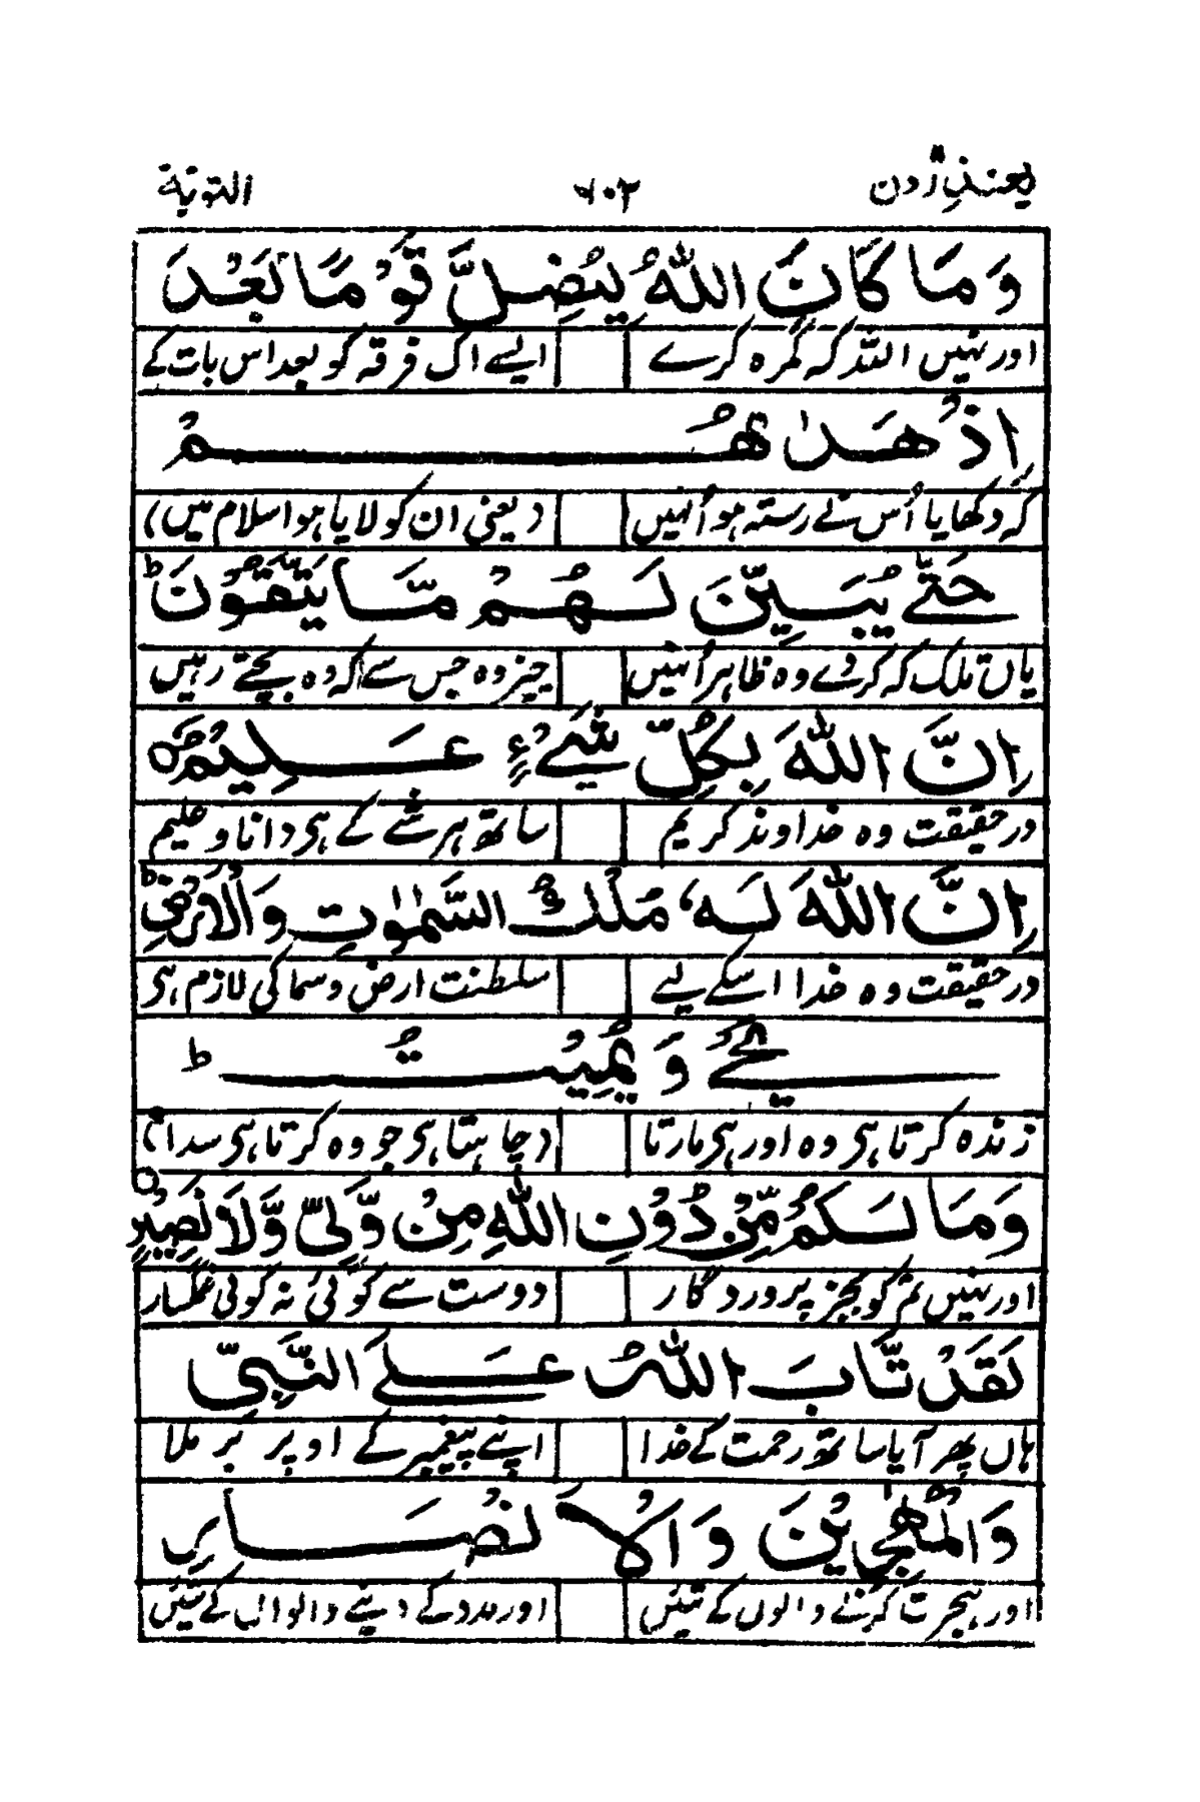 یعتذرون ۶۰۲ التوبة
وَمَا كَانَ اللّٰهُ لِيُضِلَّ قَوْمًا بَعْدَ
اور نہیں اللہ کہ گمرہ کرے ایسے اک فرقہ کو بعد اس بات کے
اِذْ هَدٰىهُمْ
کہ دکھایا اُس نے رستہ ہو اُنہیں (یعنی ان کو لایا ہو اسلام میں)
حَتّٰى يُبَيِّنَ لَهُمْ مَّا يَتَّقُوْنَ ؕ
یاں تلک کہ کر دے وہ ظاہر اُنہیں چیز وہ جس سے کہ وہ بچتے رہیں
اِنَّ اللّٰهَ بِكُلِّ شَيْءٍ عَلِيْمٌ
در حقیقت وہ خداوند کریم ساتھ ہر شے کے ہی دانا و علیم
اِنَّ اللّٰهَ لَهٗ مُلْكُ السَّمٰوٰتِ وَالْاَرْضِ ؕ
در حقیقت وہ خدا اسکے لیے سلطنت ارض و سما کی لازم ہی
يُحْيٖ وَيُمِيْتُ ؕ
زندہ کرتا ہی وہ اور ہی مارتا (چاہتا ہی جو وہ کرتا ہی سدا)
وَمَا لَكُمْ مِّنْ دُوْنِ اللّٰهِ مِنْ وَّلِيٍّ وَّلَا نَصِيْرٍ
اور نہیں تم کو بجز پروردگار دوست سے کوئی نہ کوئی غمگسار
لَقَدْ تَّابَ اللّٰهُ عَلَى النَّبِيِّ
ہاں پھر آیا ساتھ رحمت کے خدا اپنے پیغمبر کے اوپر بر ملا
وَالْمُهٰجِرِيْنَ وَالْاَنْصَارِ
اور ہجرت کرنے والوں کے تئیں اور مدد کے دینے والوں کے تئیں